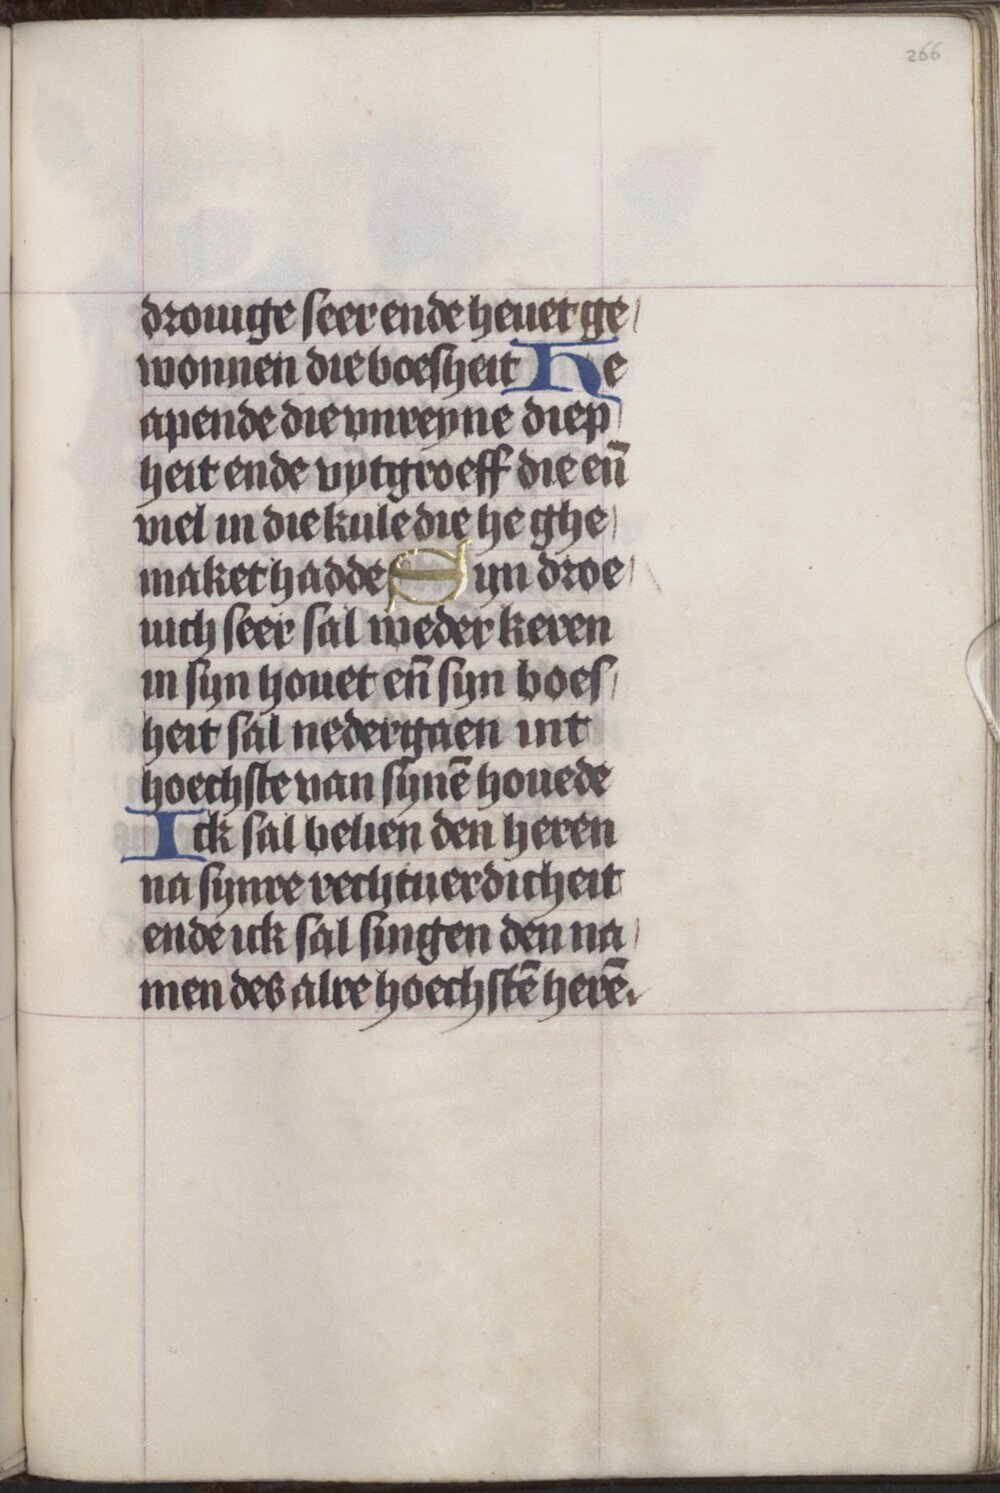 266
drouige seer ende heuet ge/
wonnen die boesheit He
apende die vnreyne diep
heit ende vytgroeff die eñ
viel in die kule die he ghe/
maket hadde Syn droe/
uich seer sal weder keren
in syn houet eñ syn boes/
heit sal nedergaen int
hoechste van synē houede
Ick sal belien den heren
na synre rechtuerdicheit
ende ick sal singen den na/
men des alre hoechstē herē.